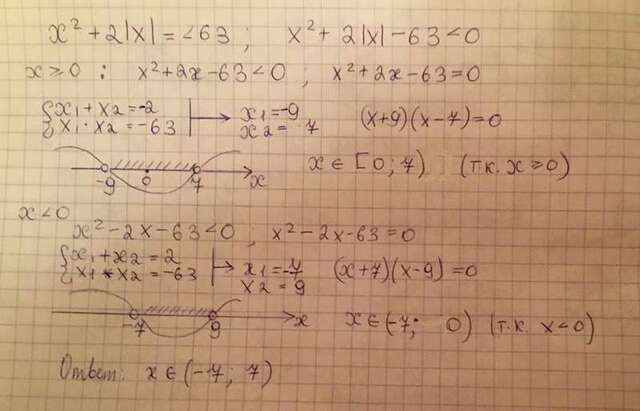 x² + 2|x| = <63 ; x² + 2|x| - 63 < 0
x ≥ 0 : x² + 2x - 63 < 0 ; x² + 2x - 63 = 0
{ x1 + x2 = -2
{ x1 · x2 = -63 | → x1 = -9 x2 = 7 (x+9)(x-7) = 0
-9 0 7 x x ∈ [0; 7) (т.к. x ≥ 0)
x < 0
x² - 2x - 63 < 0 ; x² - 2x - 63 = 0
{ x1 + x2 = 2
{ x1 * x2 = -63 | → x1 = -7 x2 = 9 (x+7)(x-9) = 0
-7 9 x x ∈ (-7; 0) (т.к. x < 0)
Ответ: x ∈ (-7; 7)